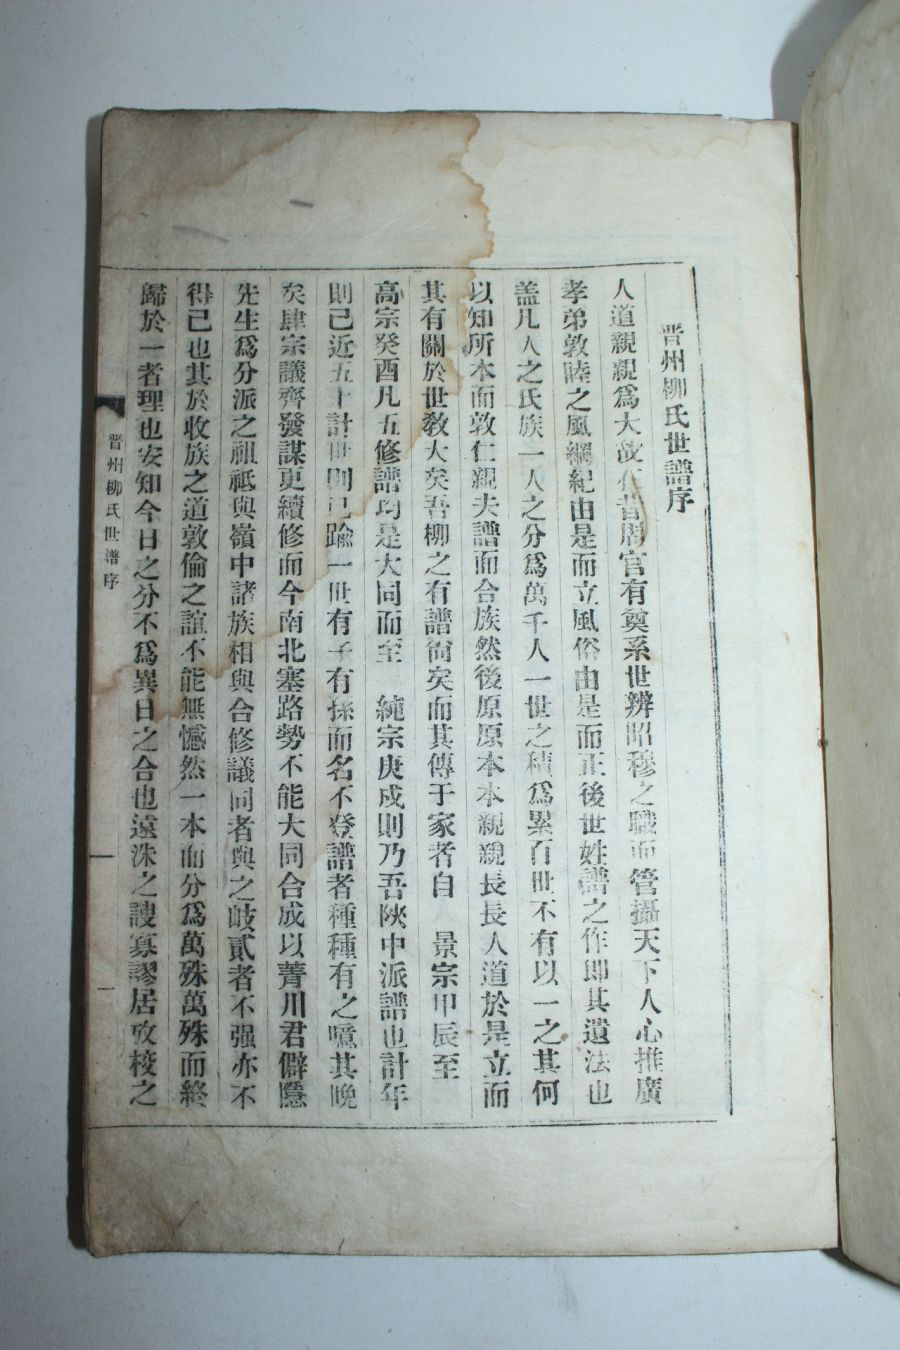 晋州柳氏世譜序
人道親親爲大故在昔周官有奠系世辨昭穆之職而管攝天下人心推廣
孝弟敦睦之風綱紀由是而立風俗由是而正後世姓譜之作卽其遺法也
盖凡人之氏族一人之分爲萬千人一世之積爲累百世不有以一之其何
以知所本而敦仁親夫譜而合族然後原原本本親親長長人道於是立而
其有關於世敎大矣吾柳之有譜尙矣而其傳于家者自 景宗甲辰至
高宗癸酉凡五修譜均是大同而至 純宗庚戌則乃吾陜中派譜也計年
則已近五十計世則已踰一世有子有孫而名不登譜者種種有之噫其晚
矣肆宗議齊發謀更續修而今南北塞路勢不能大同合成以菁川君僻隱
先生爲分派之祖祗與嶺中諸族相與合修議同者與之歧貳者不强亦不
得已也其於收族之道敦倫之誼不能無憾然一本而分爲萬殊萬殊而終
歸於一者理也安知今日之分不爲異日之合也遠洙之謏寡謬居攷校之
晋州柳氏世譜序
一